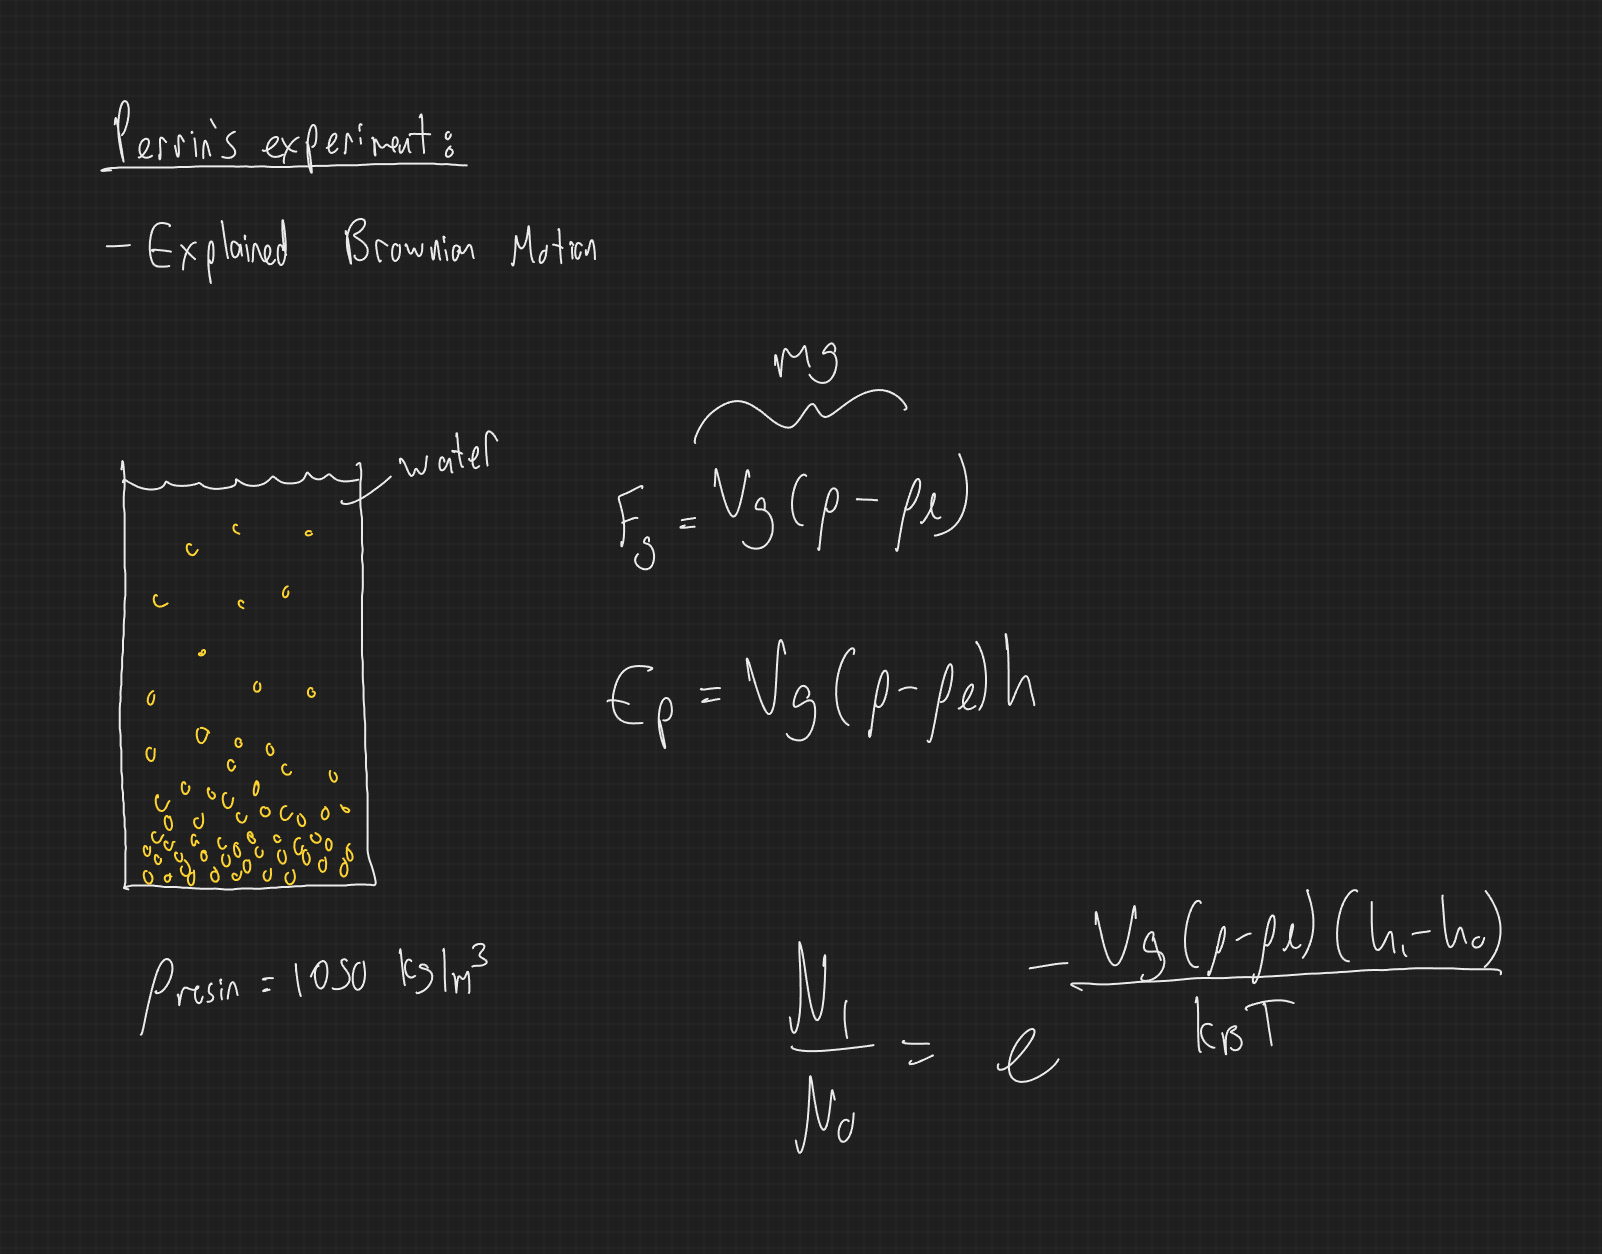 Perrin's experiment:
- Explained Brownian Motion
water
mg
Fg = Vg(ρ - ρl)
Ep = Vg(ρ-ρl)h
ρresin = 1050 kg/m³
N1/N0 = e^-Vg(ρ-ρl)(h1-h0)/kBT